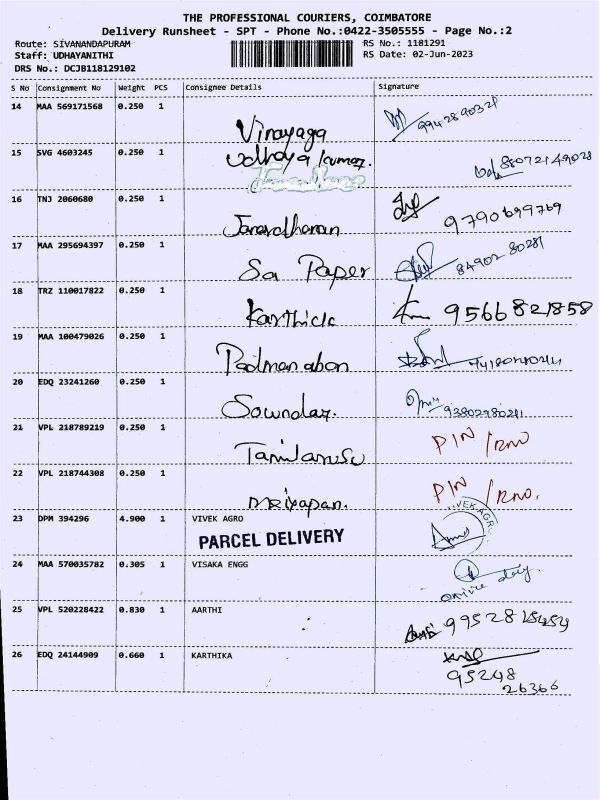 THE PROFESSIONAL COURIERS, COIMBATORE
Delivery Runsheet - SPT - Phone No.:0422-3505555 - Page No.:2
Route: SIVANANDAPURAM RS No.: 1181291
Staff: UDHAYANITHI RS Date: 02-Jun-2023
DRS No.: DCJB118129102
S No Consignment No Weight PCS Consignee Details Signature
14 MAA 569171568 0.250 1
Vinayaga 9942890321
15 SVG 4603245 0.250 1
Udhaya kumar. 8807214902
16 TNJ 2060680 0.250 1
Janardhanan 9790699769
17 MAA 295694397 0.250 1
Sa Paper 8490280281
18 TRZ 110017822 0.250 1
Karthick 9566821858
19 MAA 100479026 0.250 1
Padmanabon
20 EDQ 23241260 0.250 1
Soundar. 9380298021
21 VPL 218789219 0.250 1 PIN
Tamilarusu
22 VPL 218744308 0.250 1 PIN
23 DPM 394296 4.900 1 VIVEK AGRO VEK AGR
PARCEL DELIVERY
24 MAA 570035782 0.305 1 VISAKA ENGG
25 VPL 520228422 0.830 1 AARTHI
26 EDQ 24144909 0.660 1 KARTHIKA
95248
26366